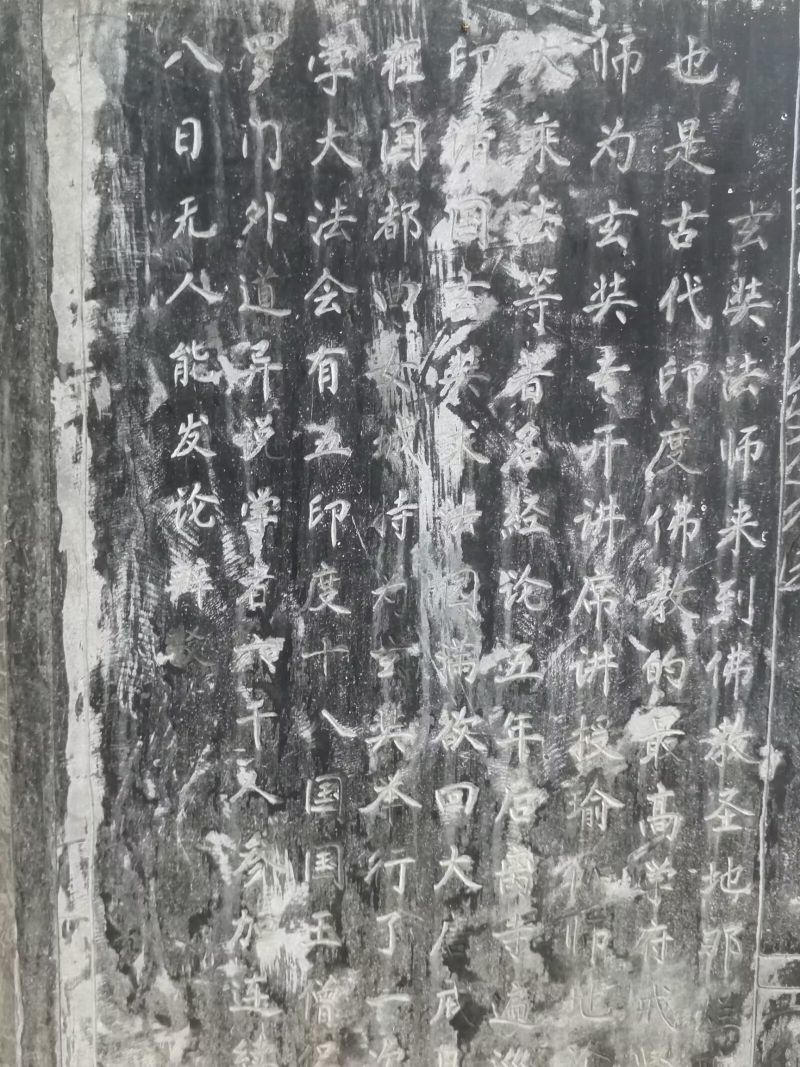 玄奘法师来到佛教圣地那
也是古代印度佛教的最高学府戒
师为玄奘专开讲席讲授瑜伽师地
大乘法等著名经论五年后离寺遍巡
印诸国玄奘求学圆满欲回大唐戒日
在国都曲女城特为玄奘举行了一次
学大法会有五印度十八国国王僧侣
罗门外道异说学者六千人参加连续
八日无人能发论辩驳